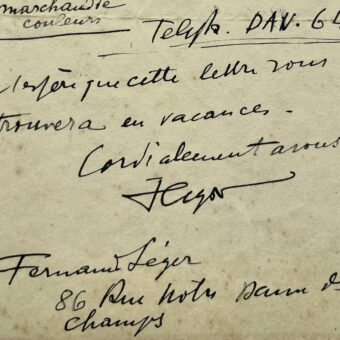 marchande
couleurs
Teleph. DAN. 64
J'espère que cette lettre vous
trouvera en vacances.
Cordialement à vous
FLeger
Fernand Léger
86 Rue Notre Dame d
champs